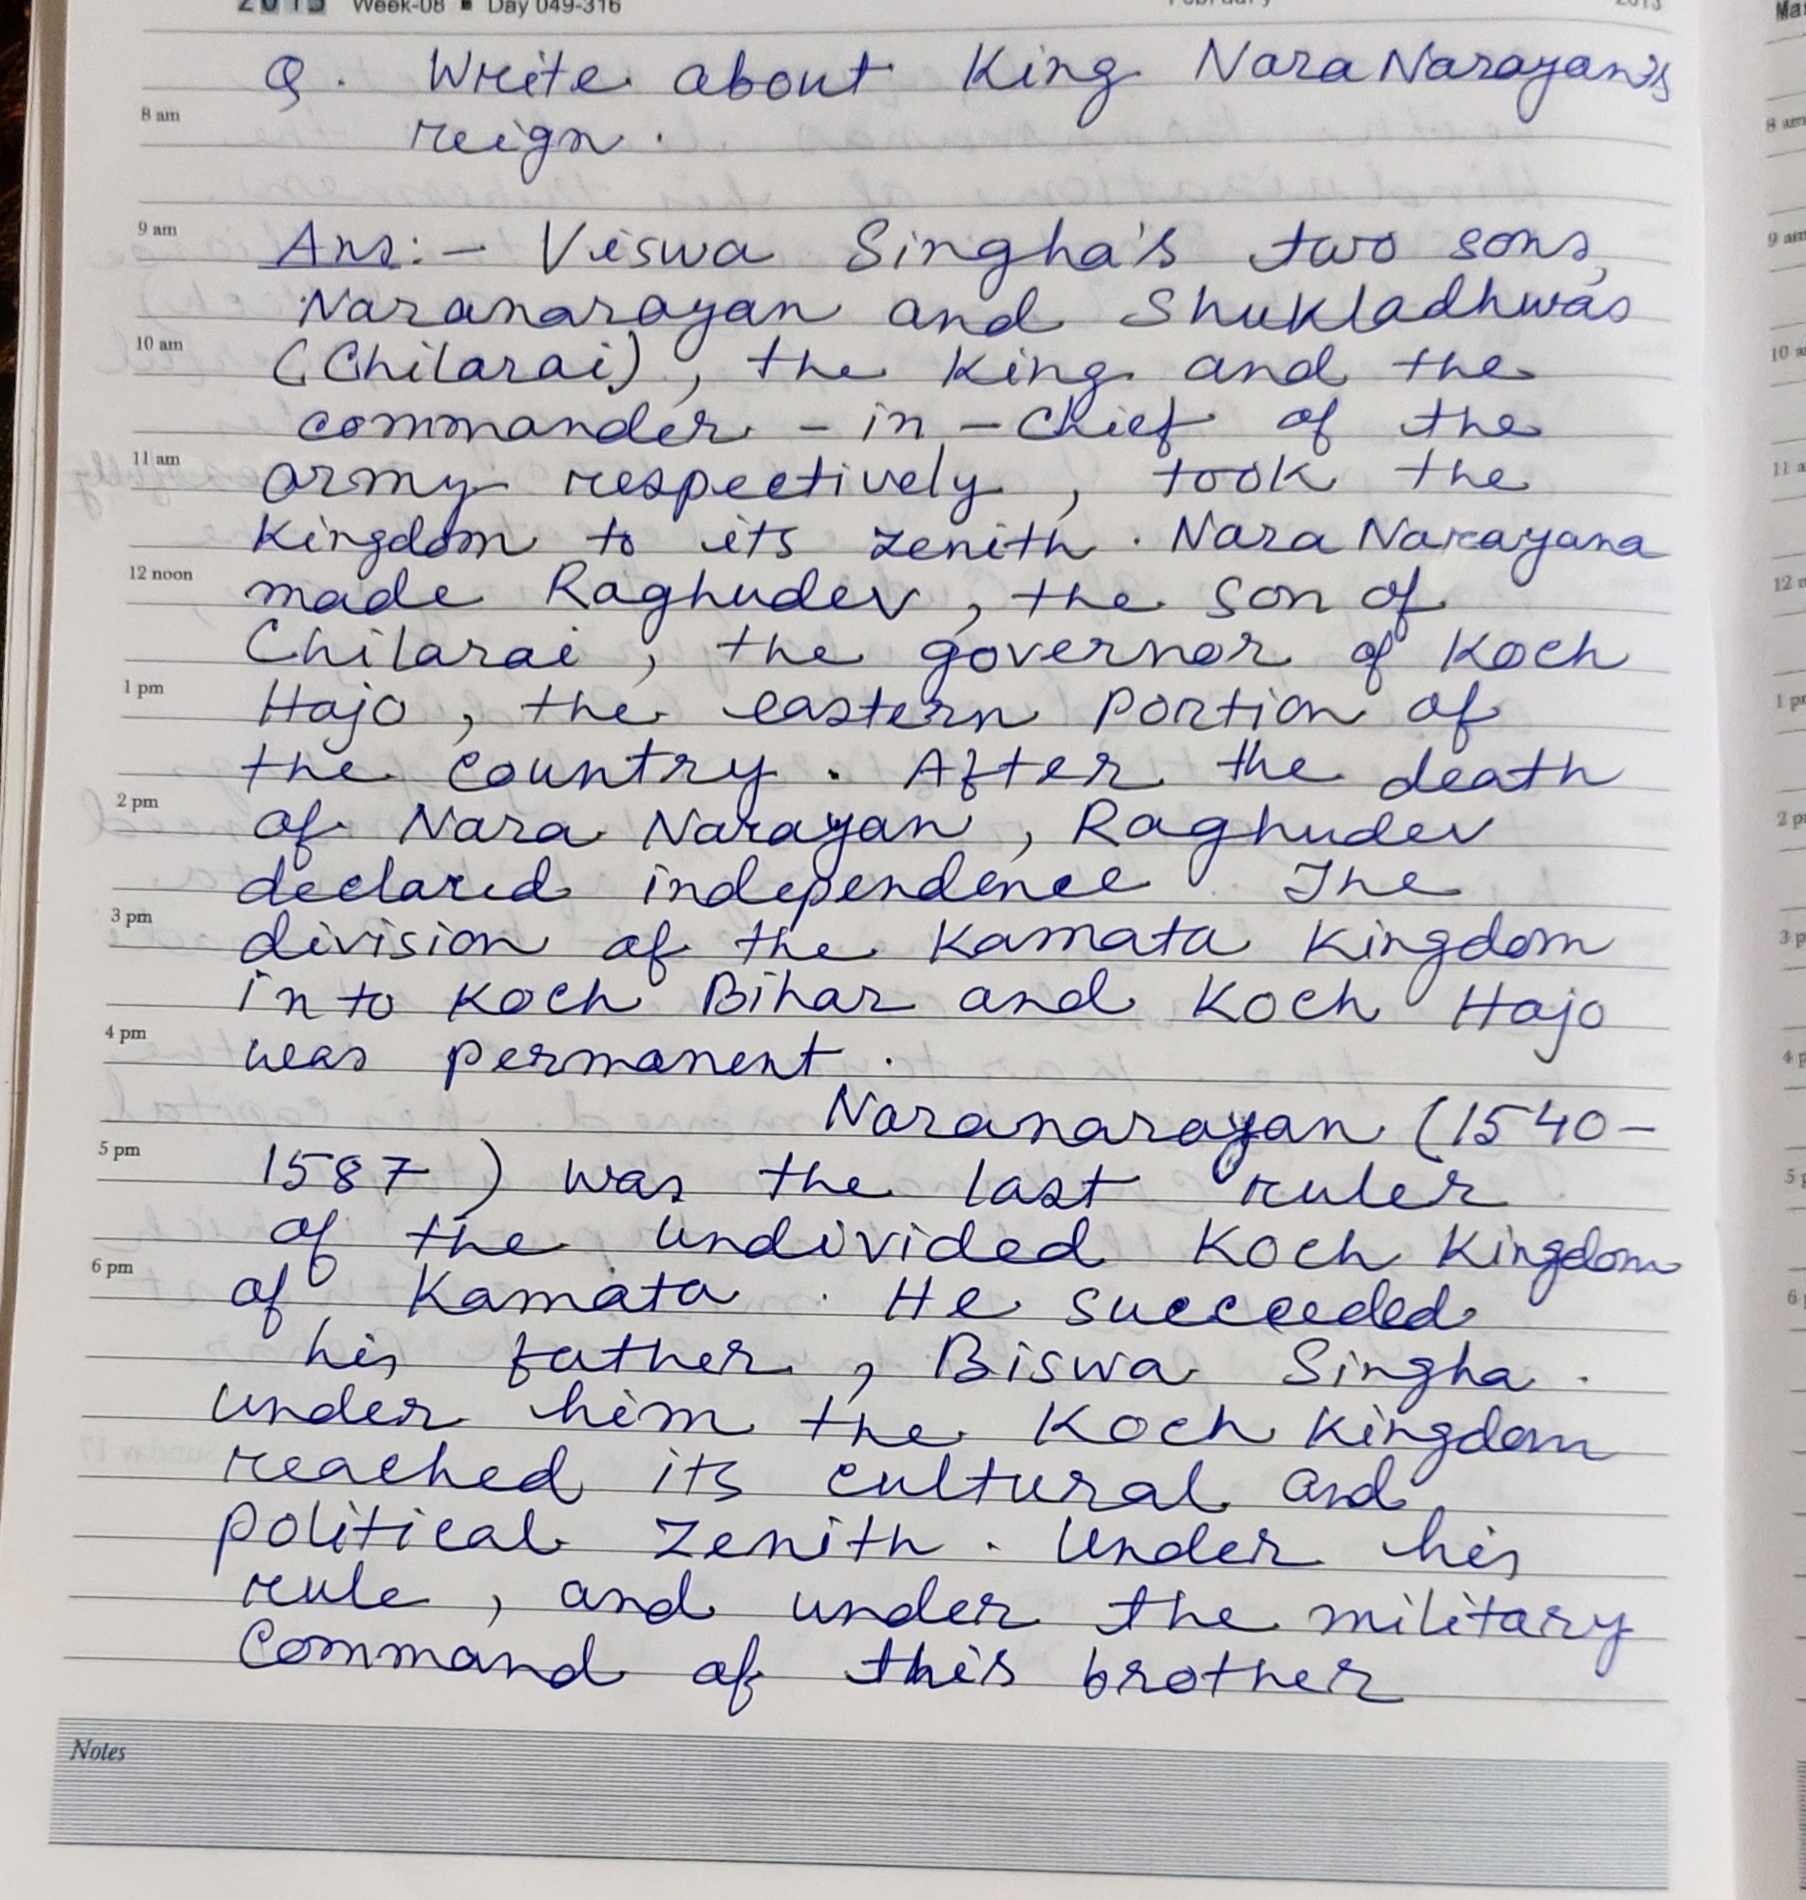 2013 Week-08 ▪ Day 049-316
February
2013
Q. Write about King Nara Narayan's
8 am
reign.
9 am
Ans:- Viswa Singha's two sons,
Naranarayan and Shukladhwas
10 am
(Chilarai), the King and the
commander-in-chief of the
11 am
army respectively, took the
Kingdom to its zenith. Nara Narayana
12 noon
made Raghudev, the son of
Chilarai, the governor of Koch
1 pm
Hajo, the eastern portion of
the country. After the death
2 pm
of Nara Narayan, Raghudev
declared independence. The
3 pm
division of the Kamata Kingdom
into Koch Bihar and Koch Hajo
4 pm
was permanent.
Naranarayan (1540-
5 pm
1587) was the last ruler
of the undivided Koch Kingdom
6 pm
of Kamata. He succeeded
his father, Biswa Singha.
under him the Koch Kingdom
reached its cultural and
political zenith. Under his
rule, and under the military
command of this brother
Notes